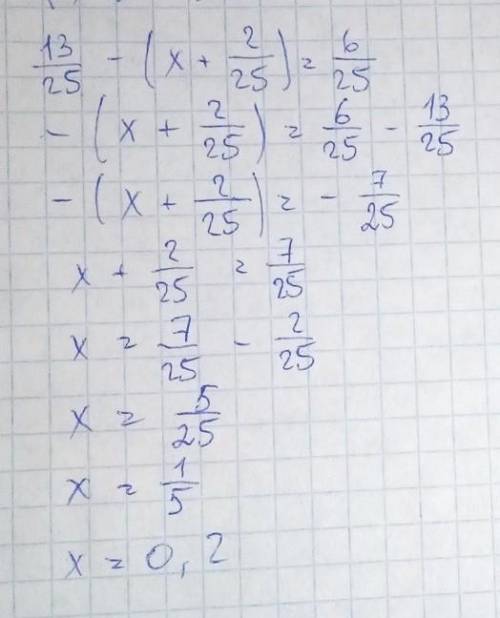 13/25 - (x + 2/25) = 6/25
- (x + 2/25) = 6/25 - 13/25
- (x + 2/25) = - 7/25
x + 2/25 = 7/25
x = 7/25 - 2/25
x = 5/25
x = 1/5
x = 0,2